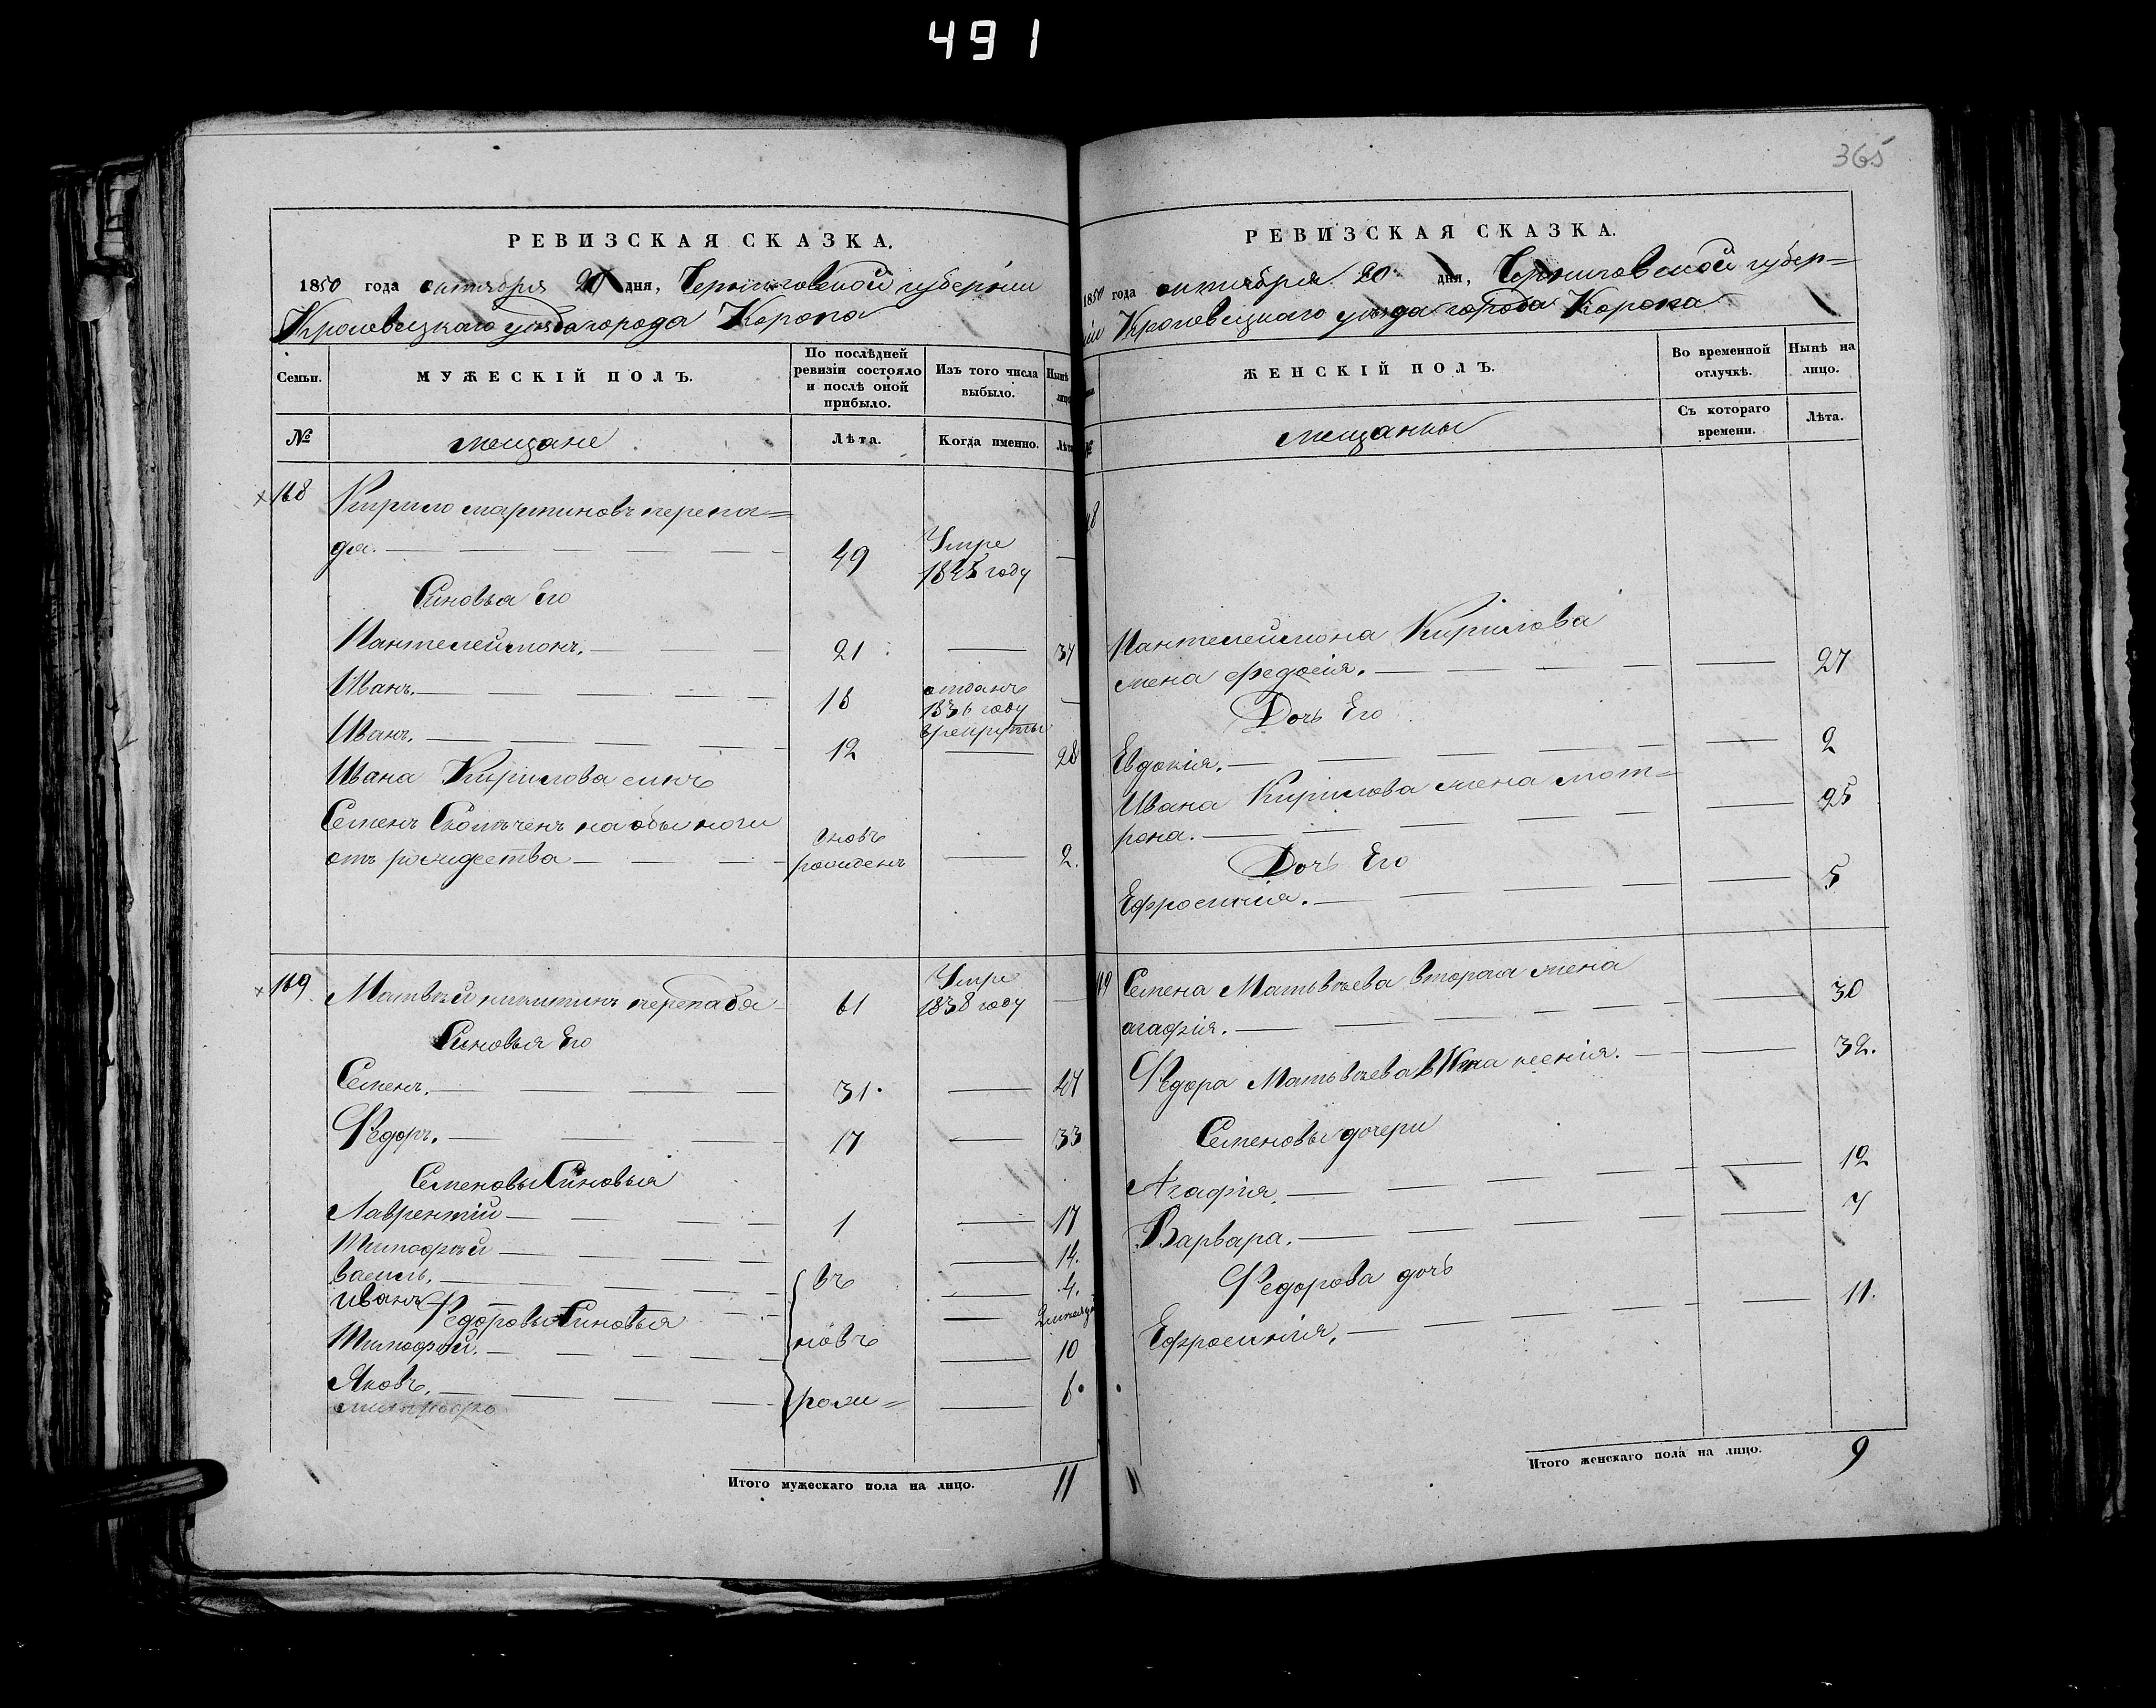 491
РЕВИЗСКАЯ СКАЗКА.
1850 года октября 20 дня, Черниговской губерніи
Кролевецкаго уѣзда города Коропа
Семьи.
МУЖЕСКІЙ ПОЛЪ.
По послѣдней ревизіи состояло и послѣ оной прибыло.
Изъ того числа выбыло.
Нынѣ
№
мещане
Лѣта.
Когда именно.
168
Кирило мартиновъ черепа=
да. 49 Умре 1845 году
Синовья Его
Пантелеймонъ. 21 37
Иванъ. 18 отданъ 1836 году
Иванъ. 12 28
Ивана Кирилова синъ
Семенъ на обы ноги
отъ рождества вновъ рожденъ 2.
169 Матвѣй никитинъ черепада 61 Умре 1838 году
Синовья Его
Семенъ. 31. 47
Федоръ. 17 33
Семеновы Синовья
Лаврентій 1 17
Тимофѣй 14.
василь. въ 4.
иванъ
Федоровы Синовья
Тимофѣй. новъ 10
Яковъ. рож= 6.
Итого мужескаго пола на лицо. 11
365
РЕВИЗСКАЯ СКАЗКА.
1850 года октября 20 дня, Черниговской губер=
ніи Кролевецкаго уѣзда города Коропа
ЖЕНСКІЙ ПОЛЪ.
Во временной отлучкѣ.
Нынѣ на лицо.
мещанки
Съ котораго времени.
Лѣта.
Пантелеймона Кирилова
жена федосія. 27
Дочь Его
Евдокія. 2
Ивана Кирилова жена мот=
рона. 25
Дочь Его
Ефросинія. 5
Семена Матьвѣева вторая жена
агафія. 30
Федора Матьвѣева жена ксенія. 32.
Семеновы дочери
Агафія 12
Варвара. 7
Федорова дочь
Ефросинія. 11.
Итого женскаго пола на лицо. 9